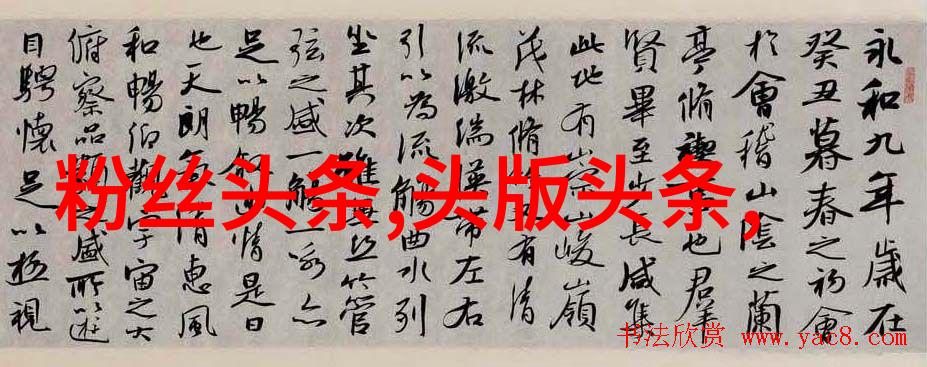 永和九年歲在
癸丑暮春之初會
於會稽山陰之蘭
亭脩禊事也群
賢畢至少長咸集
此地有崇山峻嶺
茂林脩竹又有清
流激湍暎帶左右
引以為流觴曲水列
坐其次雖無絲竹管
弦之盛一觴一詠亦
足以暢敘幽情是日
也天朗氣清惠風
和暢仰觀宇宙之大
俯察品類之盛所以遊
目騁懷足以極視
粉丝头条,头版头条,
书法欣赏 www.yac8.com